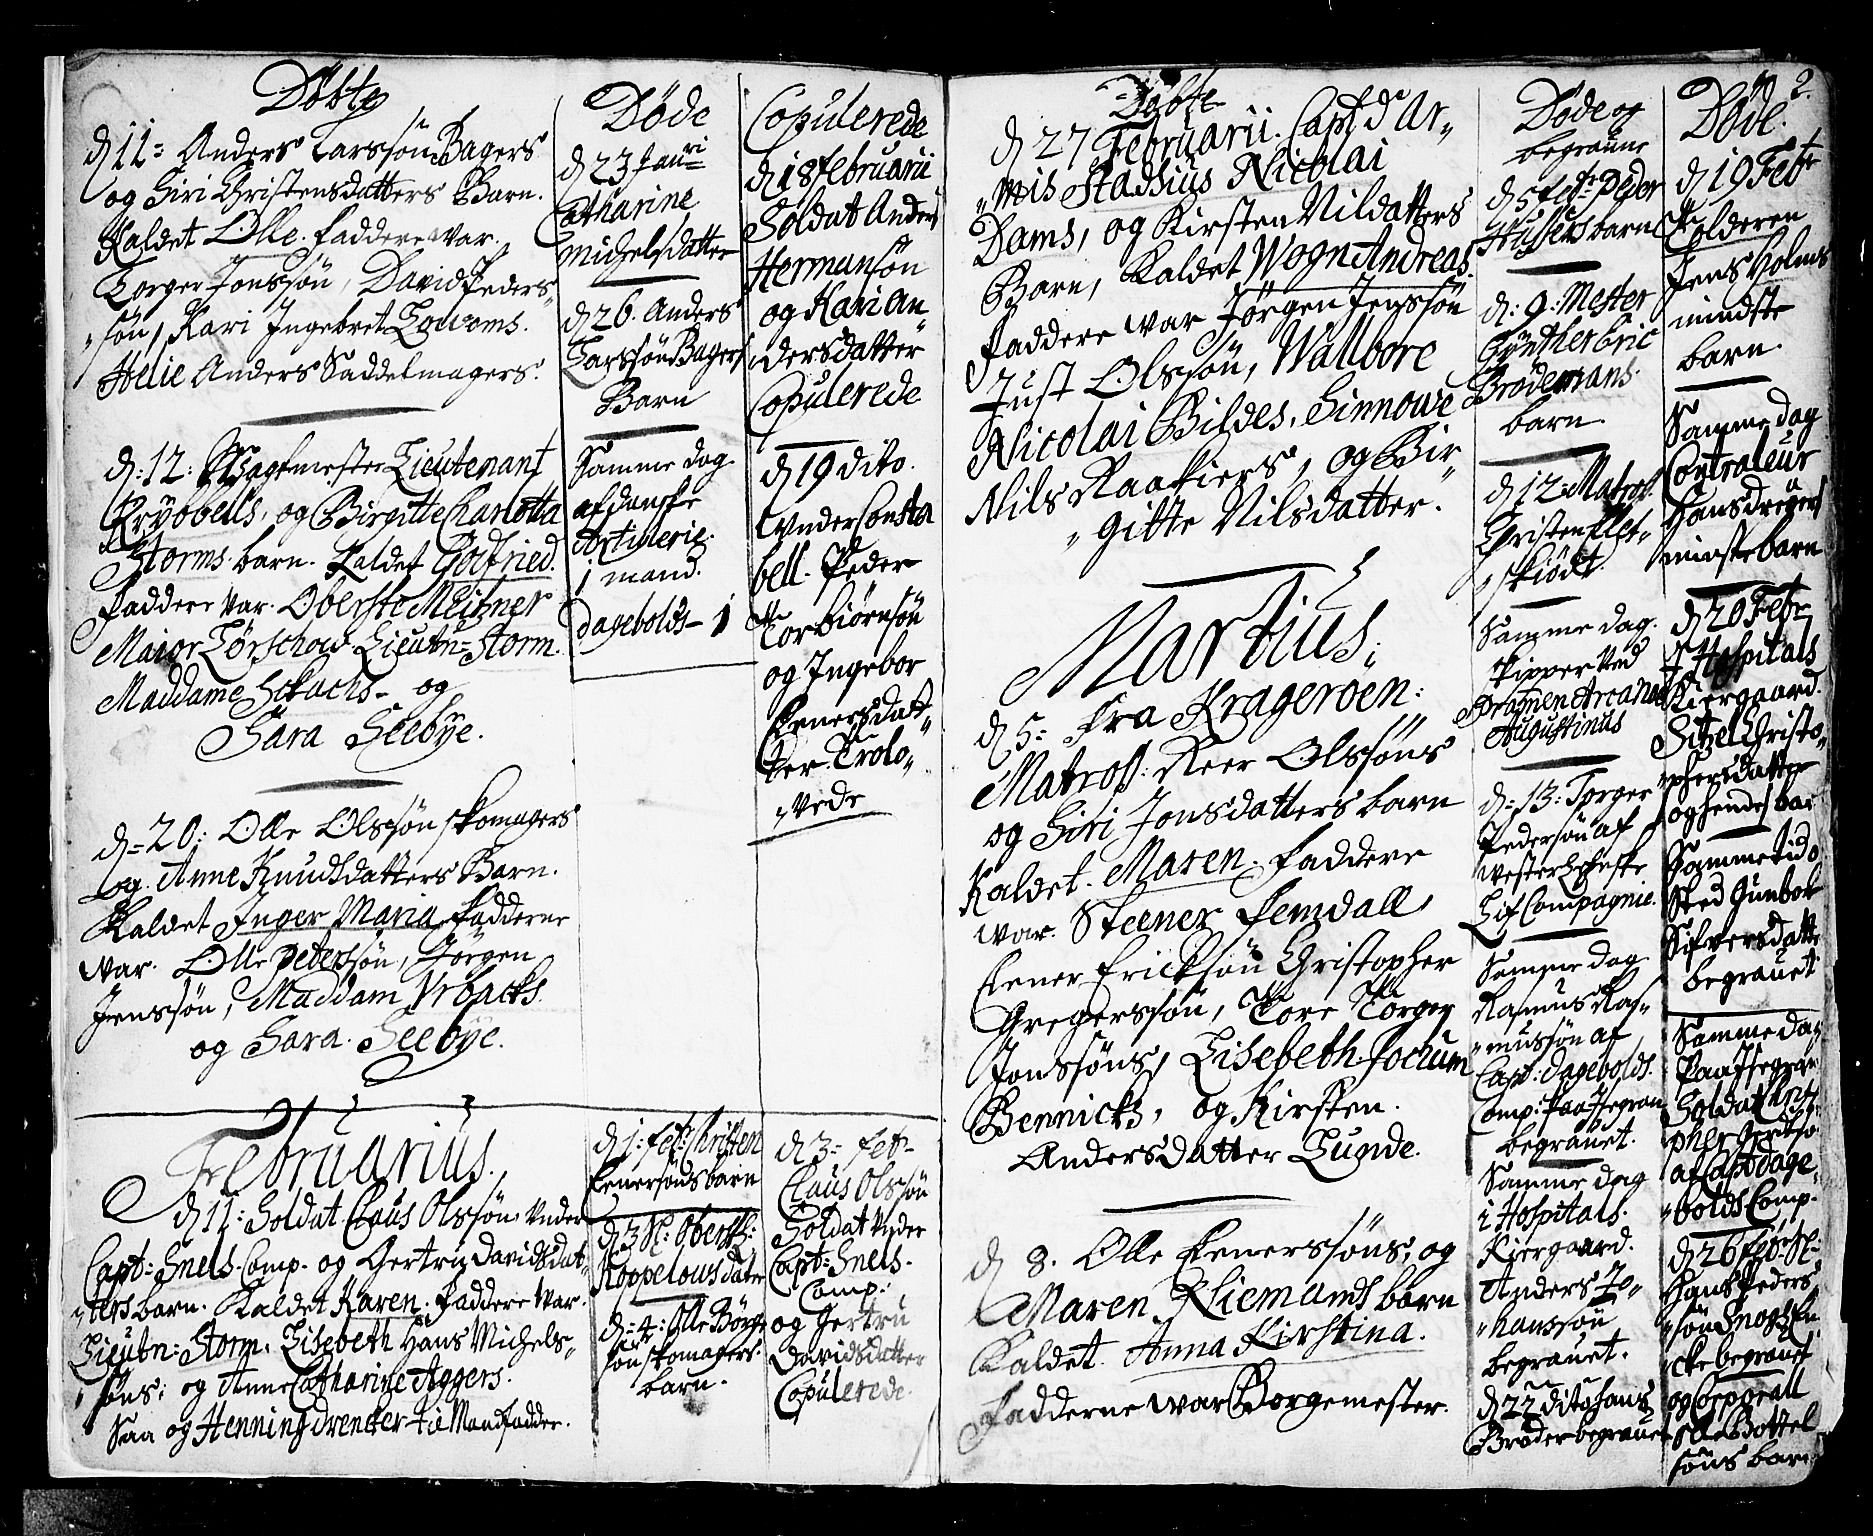 Døbte
d 11= Anders Larssøn Bagers
og Siri Christensdatters Barn.
Kaldet Olle. faddere war.
Torger Jonssøn, David Peders=
=søn, Kari Ingebret
Helie Anders Saddelmagers.
d: 12: Lieutenant
Krybbells, og Birgitte Charlotta
Storms barn. Kaldet Gotfried.
faddere var. Oberste Meitzner
Major Tørschow. Lieutn= Storm.
Maddame Schachs- og
Sara Seebÿe.
d= 20: Olle Olssøn skomagers
og. Anne Knudsdatters Barn.
Kaldet Inger Maria. fadderne
war. Olle Peterssøn, Jørgen
Jenssøn, Maddam Urbacks.
og Sara. Seebÿe.
Februarius.
d 11: Soldat Claus Olssøn under
Capt= Snels. Comp. og Gertru Davidsdat=
=ters barn. Kaldet Karen. faddere war.
Lieutn: Storm. Lisebeth Hans Michels=
=søns; og Anne Catharine Aggers.
Saa og Henning drencker til Mandfadder.
Døde
d 23 Jan:ri
Catharine
Michelsdatter
d 26. Anders
Larssøn Bagers
Barn
Samme dag
af danske
Artilerie.
1 mand.
dagebolds- 1
d 1: feb: Christen
Eenersøns barn
d 3 Sl: Oberstl:
Koppelous dater
d= 4: Olle Børge
søn skomagers.
barn.
Copulerede
d 18 februarii
Soldat Anders
Hermansøn
og Kari An
dersdatter
Copulerede
d 19 dito.
Under Consta
bell. Peder
Torbiørnsøn
og Ingebor
Eenersdatt=
ter. Trolo=
=vede
d 3= feb=
Claus Olssøn
Soldat under
Capt= Snels.
Comp:
og Gertru
Davidsdatter
Copulerede.
Døbte
d 27 Februarii. Capt d'Ar=
=mis Stadsius Nicolai
Dams, og Kirsten Nilsdatters
Barn, Kaldet Wogn Andreas.
faddere war Jørgen Jenssøn
Just Olssøn, Wallbore
Nicolai Bildes, Sinnowe
Nils Raakiers, og Bir=
=gitte Nilsdatter.
Martius.
d 5= fra Kragerøen:
Matros: Reer Olssøns
og Siri Jonsdatters barn
Kaldet. Maren. faddere
war. Steener Femdall,
Eener Ericksøn Christopher
Gregerssøn, Tore Torger
Jonssøns, Lisebeth Jochum
Bennicks, og Kirsten.
Andersdatter Lunde.
d 8. Olle Eenerssøns, og
Maren Kliemands barn
Kaldet. Anna Kirstina.
Fadderne war Borgemester.
Døde og
begraune
d 5 feb: Peder
barn
d: 9: Mester
Gÿnther bric
Brødemans.
barn.
d 12= Matros.
Christen Flet=
=skiødt.
Samme dag.
skipper ved
Dramen
Augustinus
d= 13: Torger
Pedersøn af
wester
Lif Compagnie.
Samme dag
Rasmus Ras=
=mussøn af
Capt: dagebolds.
Comp: paa Isegran
begrauet.
Samme dag
i Hospitals.
Kiergaard.
Anders Jo=
=hanssøn
begrauet.
d 22 dito hans
Broder begrauet
2.
Døde.
d 19 Feb:
Jens Holms
mindste
barn.
Samme dag
Controleur
Hans dreyers
minste barn
d 20 Feb:
I Hospitals
Kiergaard.
Sitzel Christo=
phersdatter
og hendes bar
Samme tid o
sted Gunbor
Sifversdatte
begrauet
Samme dag
paa Isegran
Soldat Christ
pher
af Capt dage
=bolds Comp.
d 26 feb: Sl:
Hans Peders=
=søn Snogs En
=cke begrauet
og Corporall
søns barn